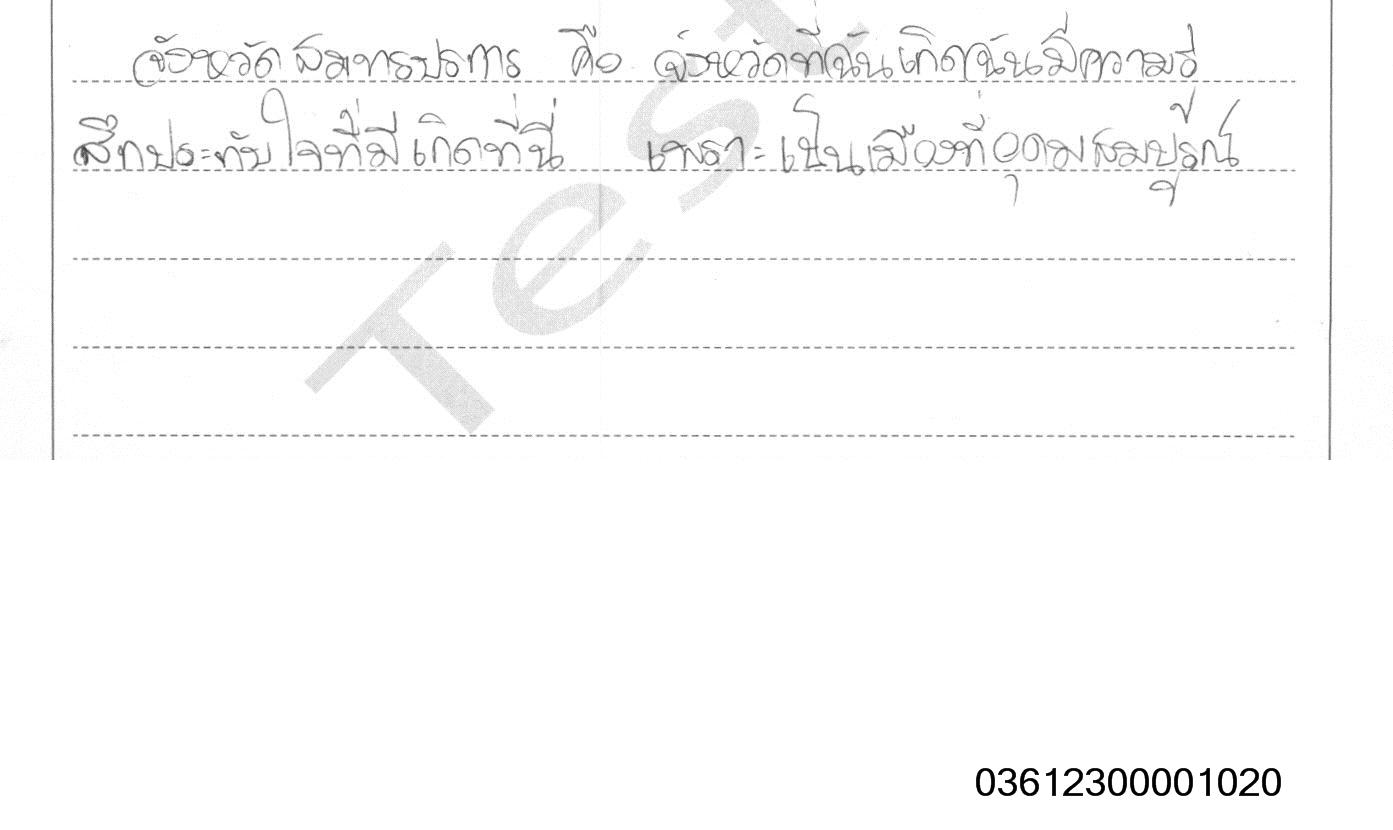 จังหวัดสมทรปราการ คือ จังหวัดที่ฉันเกิดฉันมีความรู้
สึกประทับใจที่มีเกิดที่นี่ เพราะเป็นเมืองที่อุดมสมบูรณ์
Test
03612300001020